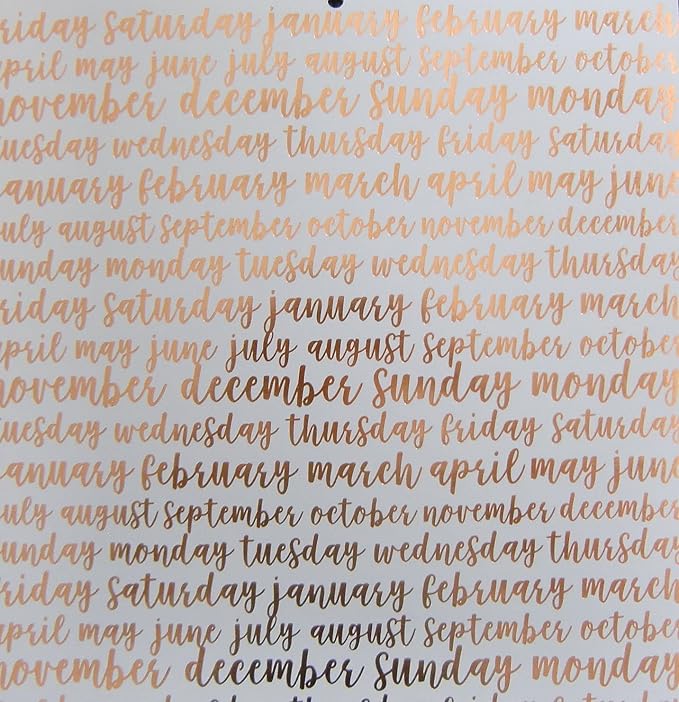 friday saturday january february march
april may june july august september october
november december sunday monday
tuesday wednesday thursday friday saturday
january february march april may june
july august september october november december
sunday monday tuesday wednesday thursday
friday saturday january february march
april may june july august september october
november december sunday monday
tuesday wednesday thursday friday saturday
january february march april may june
july august september october november december
sunday monday tuesday wednesday thursday
friday saturday january february march
april may june july august september october
november december sunday monday